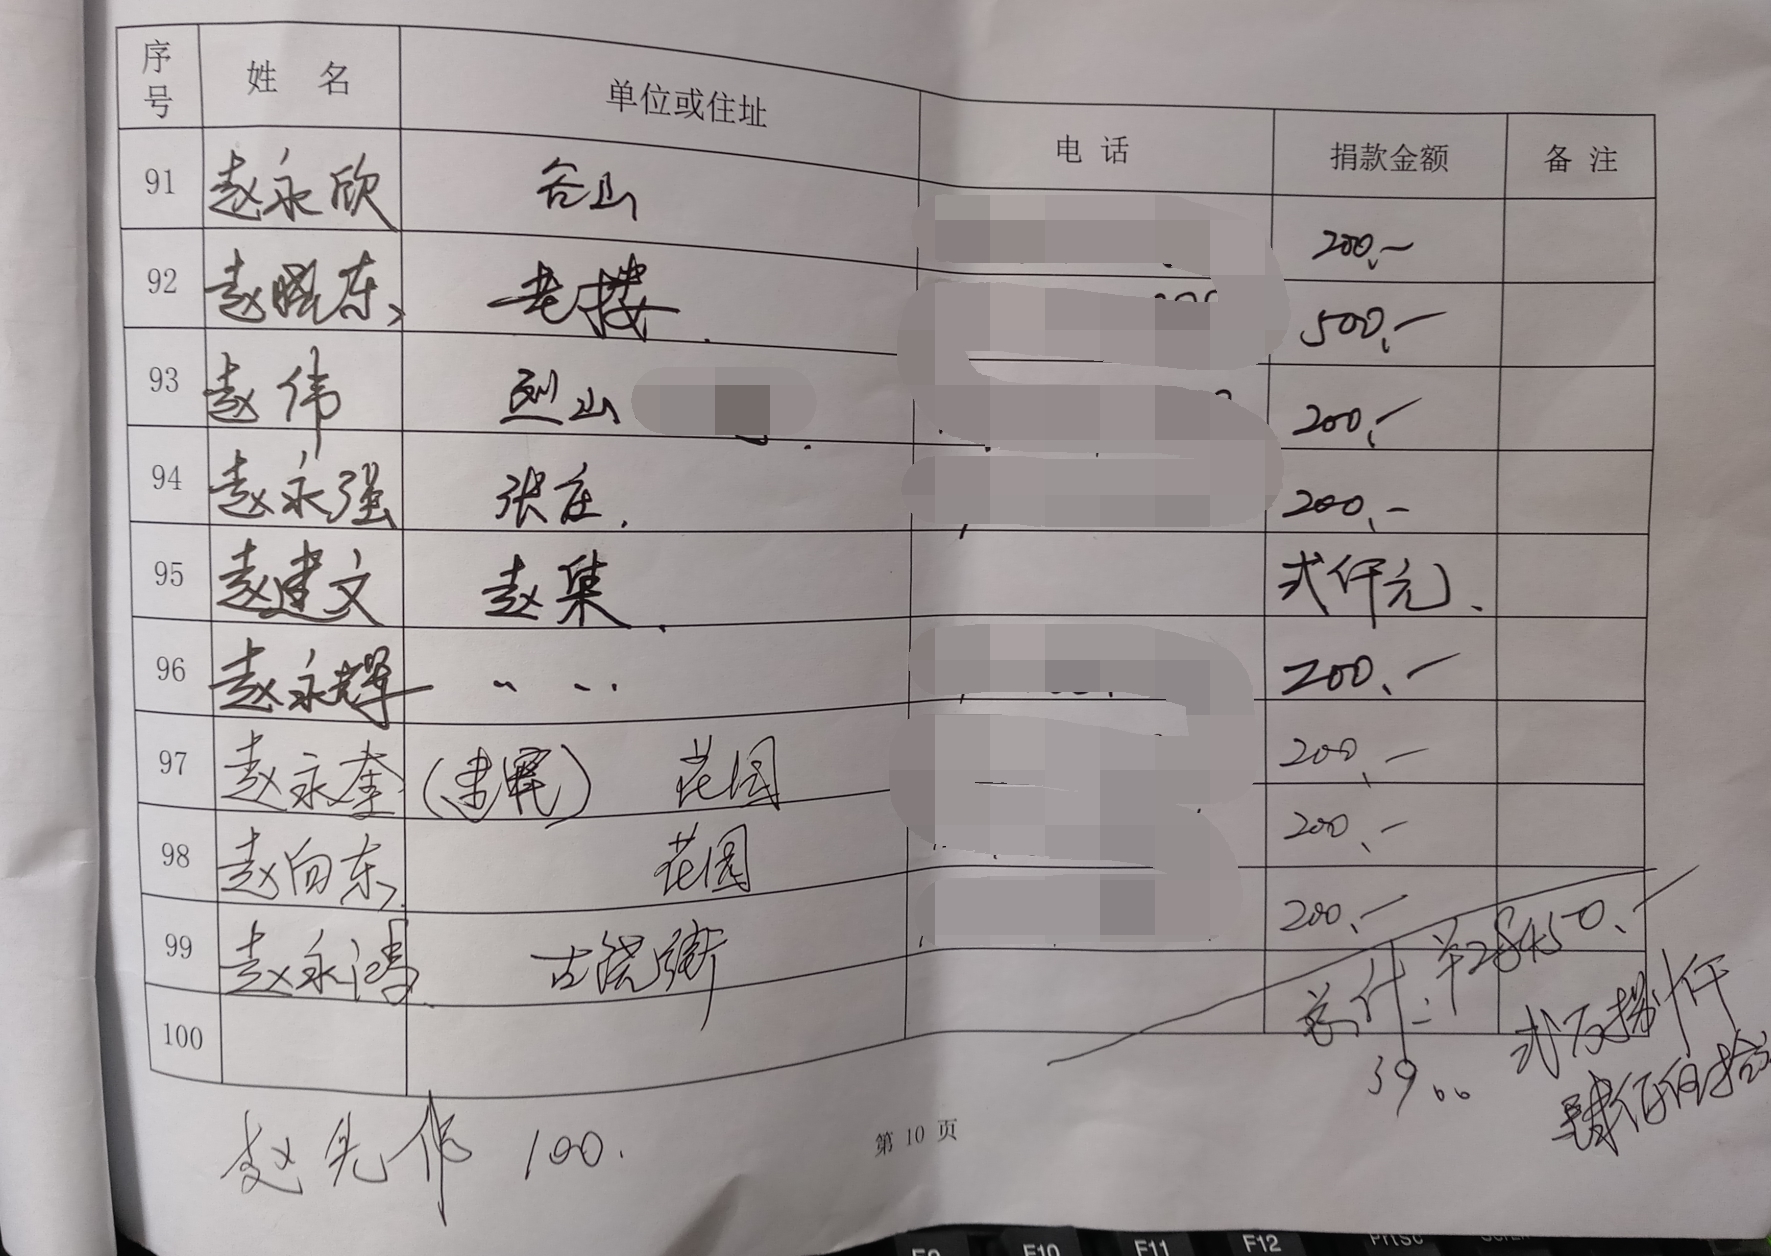 序号 姓 名 单位或住址 电 话 捐款金额 备 注
91 赵永欣 谷山 200.-
92 赵晓东 老楼. 500.-
93 赵伟 烈山 200.-
94 赵永强 张庄. 200.-
95 赵建文 赵集. 弍仟元.
96 赵永辉 〃 〃 200.-
97 赵永奎 花园 200.-
98 赵向东 花园 200.-
99 赵永鸿 古饶街 200.-
100
¥28450.-
弍万捌仟
肆佰伍拾
赵先作 100.
第 10 页
F9 F10 F11 F12 PrtSc